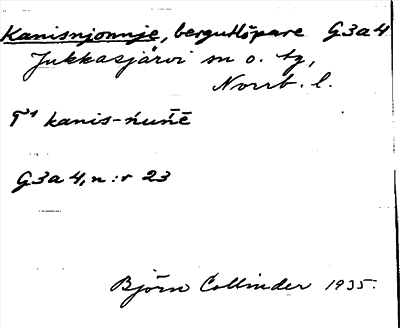 Kanisnjonnje, bergutlöpare G3a4
Jukkasjärvi sn o. tg,
Norrb. l.
kanis-
G3a4, n:r 23
Björn Collinder 1935.